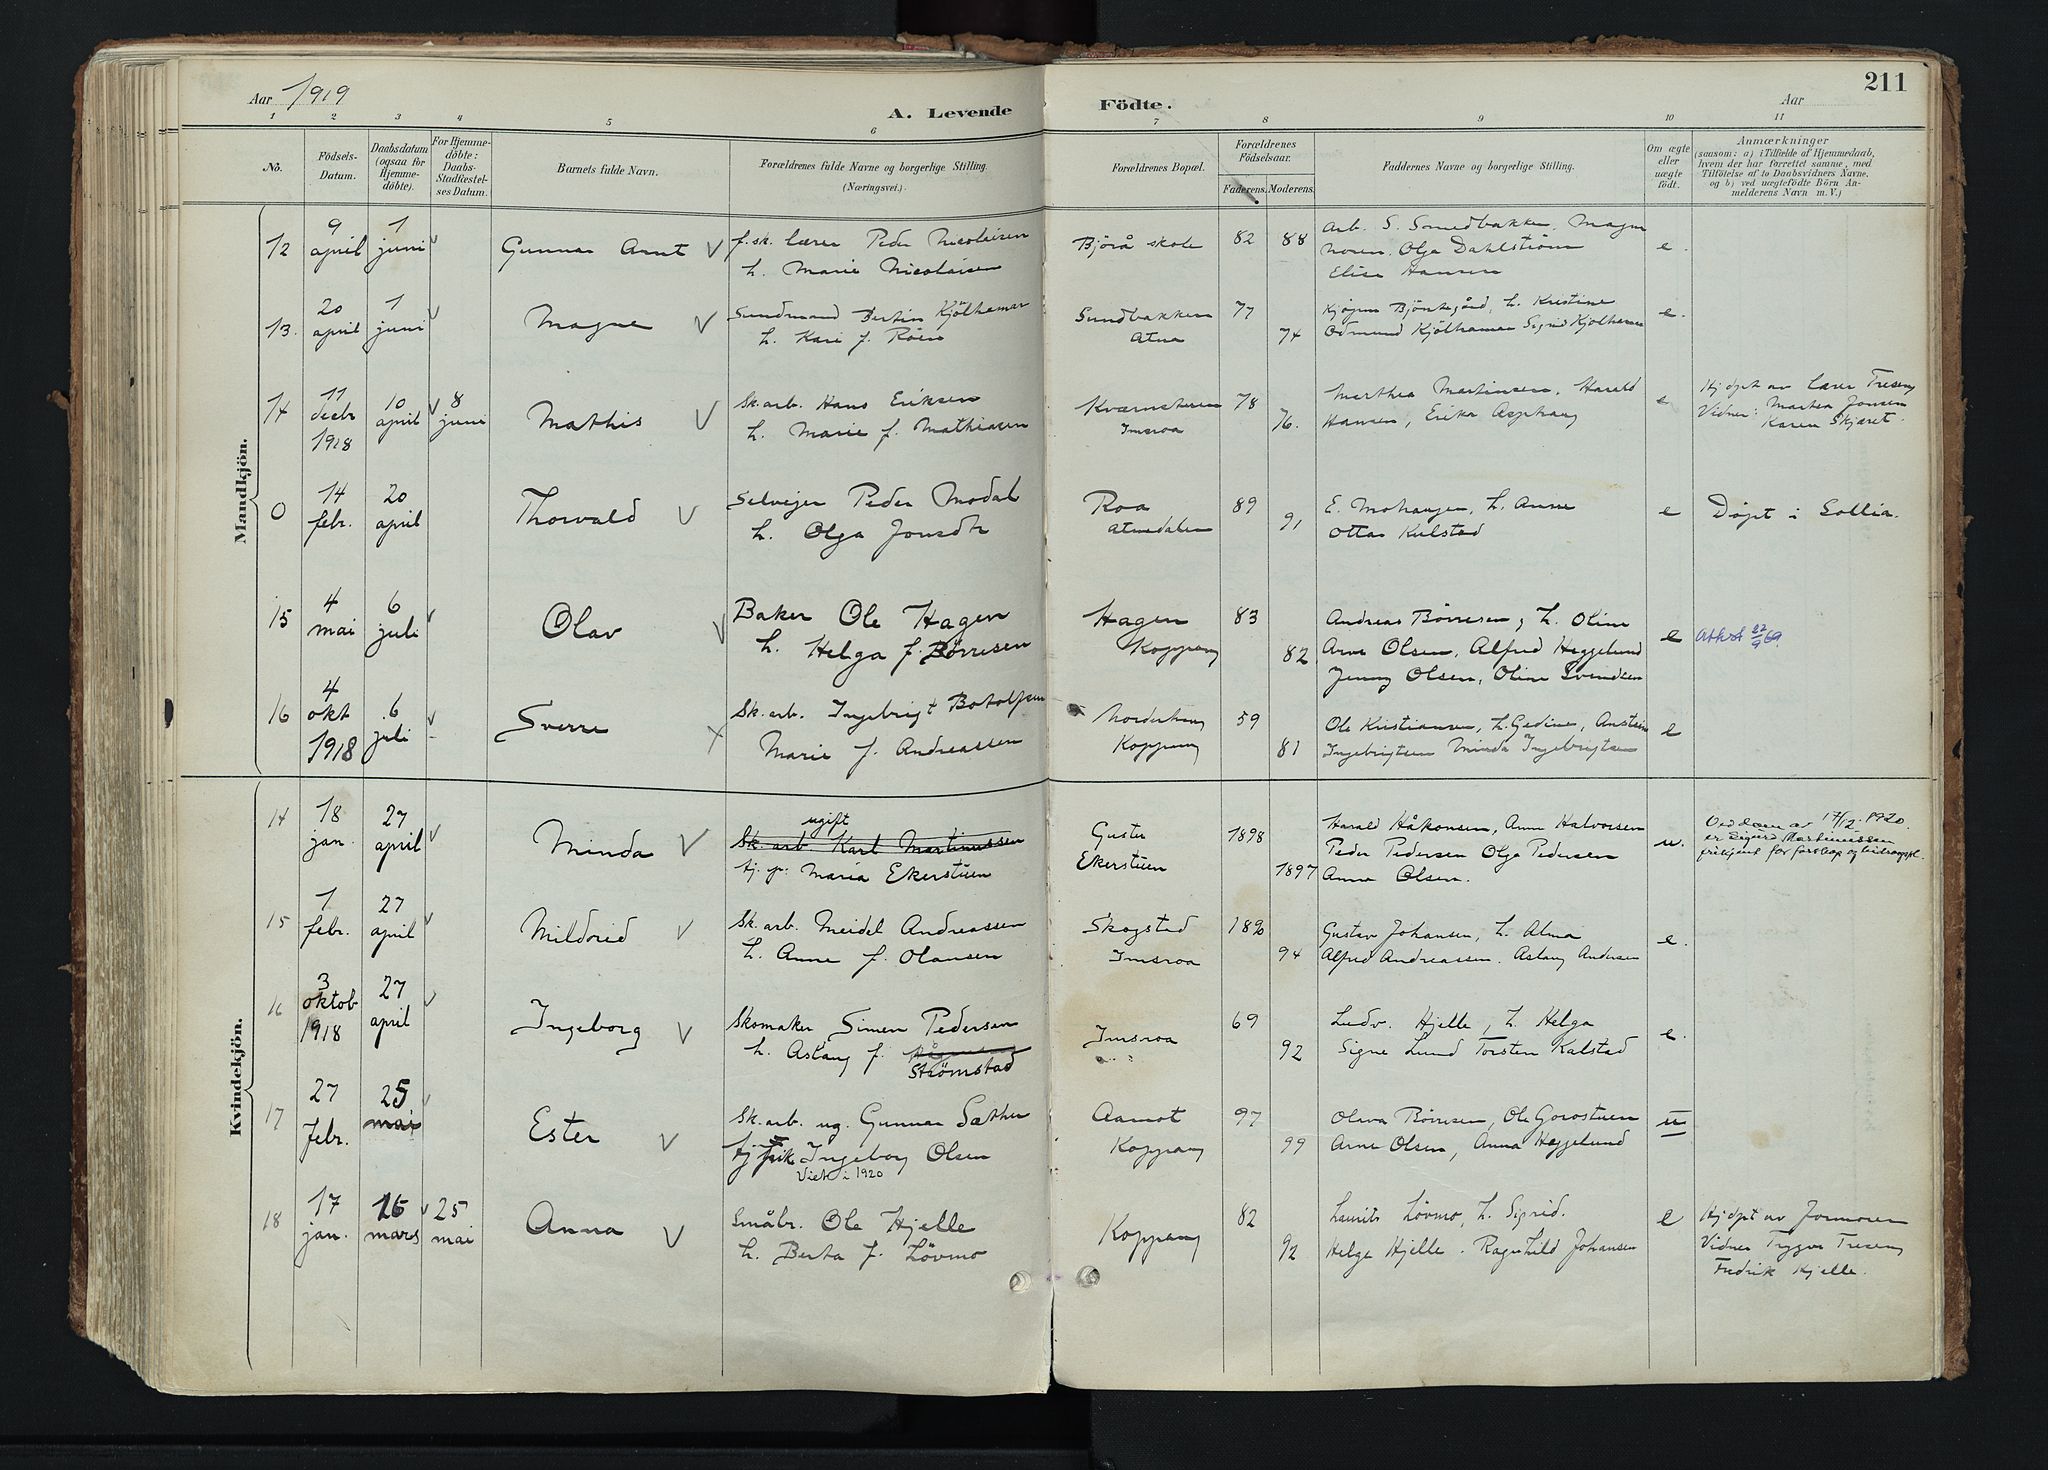 Aar 1919
A. Levende
Födte.
Aar
211
1 2 3 4 5 6 7 8 9 10 11
No.
Födsels-
Datum.
Daabsdatum
(ogsaa for
Hjemme-
döbte).
For Hjemme-
döbte:
Daabs-
Stadfæstel-
ses Datum.
Barnets fulde Navn.
Forældrenes fulde Navne og borgerlige Stilling.
(Næringsvei).
Forældrenes Bopæl.
Forældrenes
Födselsaar.
Faderens. Moderens.
Faddernes Navne og borgerlige Stilling.
Om ægte
eller
uægte
födt.
Anmærkninger
(saasom: a) i Tilfælde af Hjemmedaab,
hvem der har forrettet samme, med
Tilföielse af to Daabsvidners Navne,
og b) ved uægtefödte Börn An-
melderens Navn m. V.)
Mandkjön.
12
9
april
1
juni
Gunnar Arnt
f. sk. lærer Peder Nicolaisen
h. Marie Nicolaisen
Bjørå skole
82
88
Arb. S. Smedbakken, Magn
Noren. Olga Dahlstrøm
Elise Hansen
e.
13.
20
april
1
juni
Magne
Sundmand Bertin Kjölhamar
h. Kari f. Röen
Sundbakken
Atna
77
74
Bjørkegård, h. Kristine
Odmund Kjölhamar Sigrid Kjölhamar
e.
14
11
decbr
1918
10
april
8
juni
Mathis
Sk. arb. Hans Eriksen
h. Marie f. Mathiasen
Imsroa
78
76.
Marthea Martinsen, Harald
Hansen, Erika Asphaug
e
Hjdpt av lærer Treseng
Vidner: Martea Jonsen
Karen Skjæret.
0
14
febr.
20
april
Thorvald
Selveier Peder Modal
h. Olga Jonsdtr
Roa
Atnedalen
89
91
E. Mohaugen, h. Anne
Ottar Kulstad
e
Døpt i Sollia.
15
4
mai
6
juli
Olav
Baker Ole Hagen
h. Helga f. Børresen
Hagen
Koppang
83
82
Andreas Børresen, h. Oline
Arne Olsen, Alfred Heggelund
Jenny Olsen, Oline Svendsen
e
16
4
okt
1918
6
juli
Sverre
Sk. arb. Ingebrigt Botolfsen
Marie f. Andreassen
Norderhaug
Koppang
59
81
Ole Kristiansen, h. Gedine, Anstein
Ingebrigtsen Minda Ingebrigtsen
e
Kvindekjön.
14
18
jan.
27
april
Minda
ugift
Sk. arb. Karl Martinussen
tj. p: Maria Ekerstuen
Guster
Ekerstuen
1898
1897
Harald Håkonsen, Anne Halvorsen
Peder Pedersen Olga Pedersen
Anne Olsen.
u.
Ved dom av 17/12 1920
er Sigurd Martinussen
frikjent for farskap og bidragspl.
15
1
febr.
27
april
Mildrid
Sk. arb. Meidel Andreassen
h. Anne f. Olausen
Skogstad
Imsroa
1890
94
Gustav Johansen, h. Alma
Alfred Andreassen. Aslaug Andersen
e.
16
3
oktob
1918
27
april
Ingeborg
Skomaker Simen Pedersen
h. Aslaug f.
Strømstad
Imsroa
69
92
Ludv. Hjelle, h. Helga
Signe Lund Torsten Kalstad
e.
17
27
febr.
25
mai
Ester
Sk. arb. ug. Gunnar Sæther
tj. Ingeborg Olsen
Viet i 1920
Aamot
Koppang
97
99
Olava Børresen, Ole Gorostuen
Arne Olsen, Anna Heggelund
u
18
17
jan.
16
mars
25
mai
Anna
Småbr. Ole Hjelle
h. Berta f. Løvmo
Koppang
82
92
Laurits Løvmo, h. Sigrid.
Helge Hjelle. Ragnhild Johansen
e
Hjdpt av Jormoren
Vidner Trygve Treseng
Fredrik Hjelle.